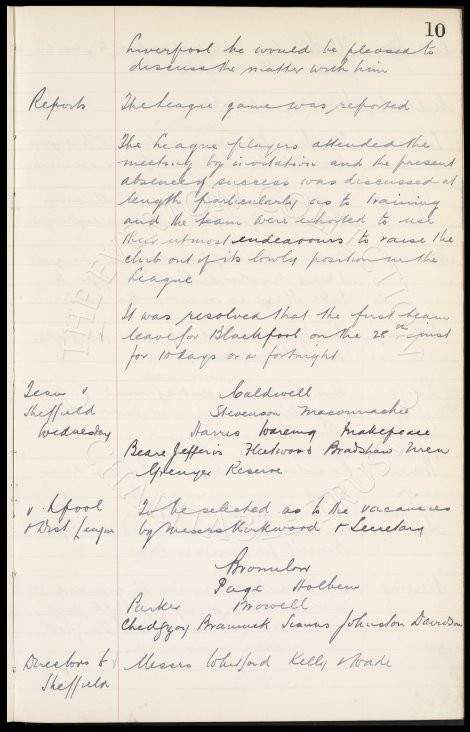 10
Liverpool he would be pleased to
discuss the matter with him
Reports The League game was reported
The League players attended the
meeting by invitation and the present
absence of success was discussed at
length particularly as to training
and the team were exhorted to use
their utmost endeavours to raise the
club out of its lowly position in the
League
It was resolved that the first team
leave for Blackpool on the 28th inst
for 10 days or a fortnight
Team v Caldwell
Sheffield Stevenson Maconnachie
Wednesday Harris Wareing Makepeace
Beare Jefferis Fleetwood Bradshaw Wren
Grenyer Reserve
v. L'pool To be selected as to the vacancies
& Dist League by Messrs Kirkwood & Secretary
Bromilow
Page Holbem
Parker Browell
Chedgzoy Brannick Johnston Davidson
Directors to Messrs Kelly Wade
Sheffield